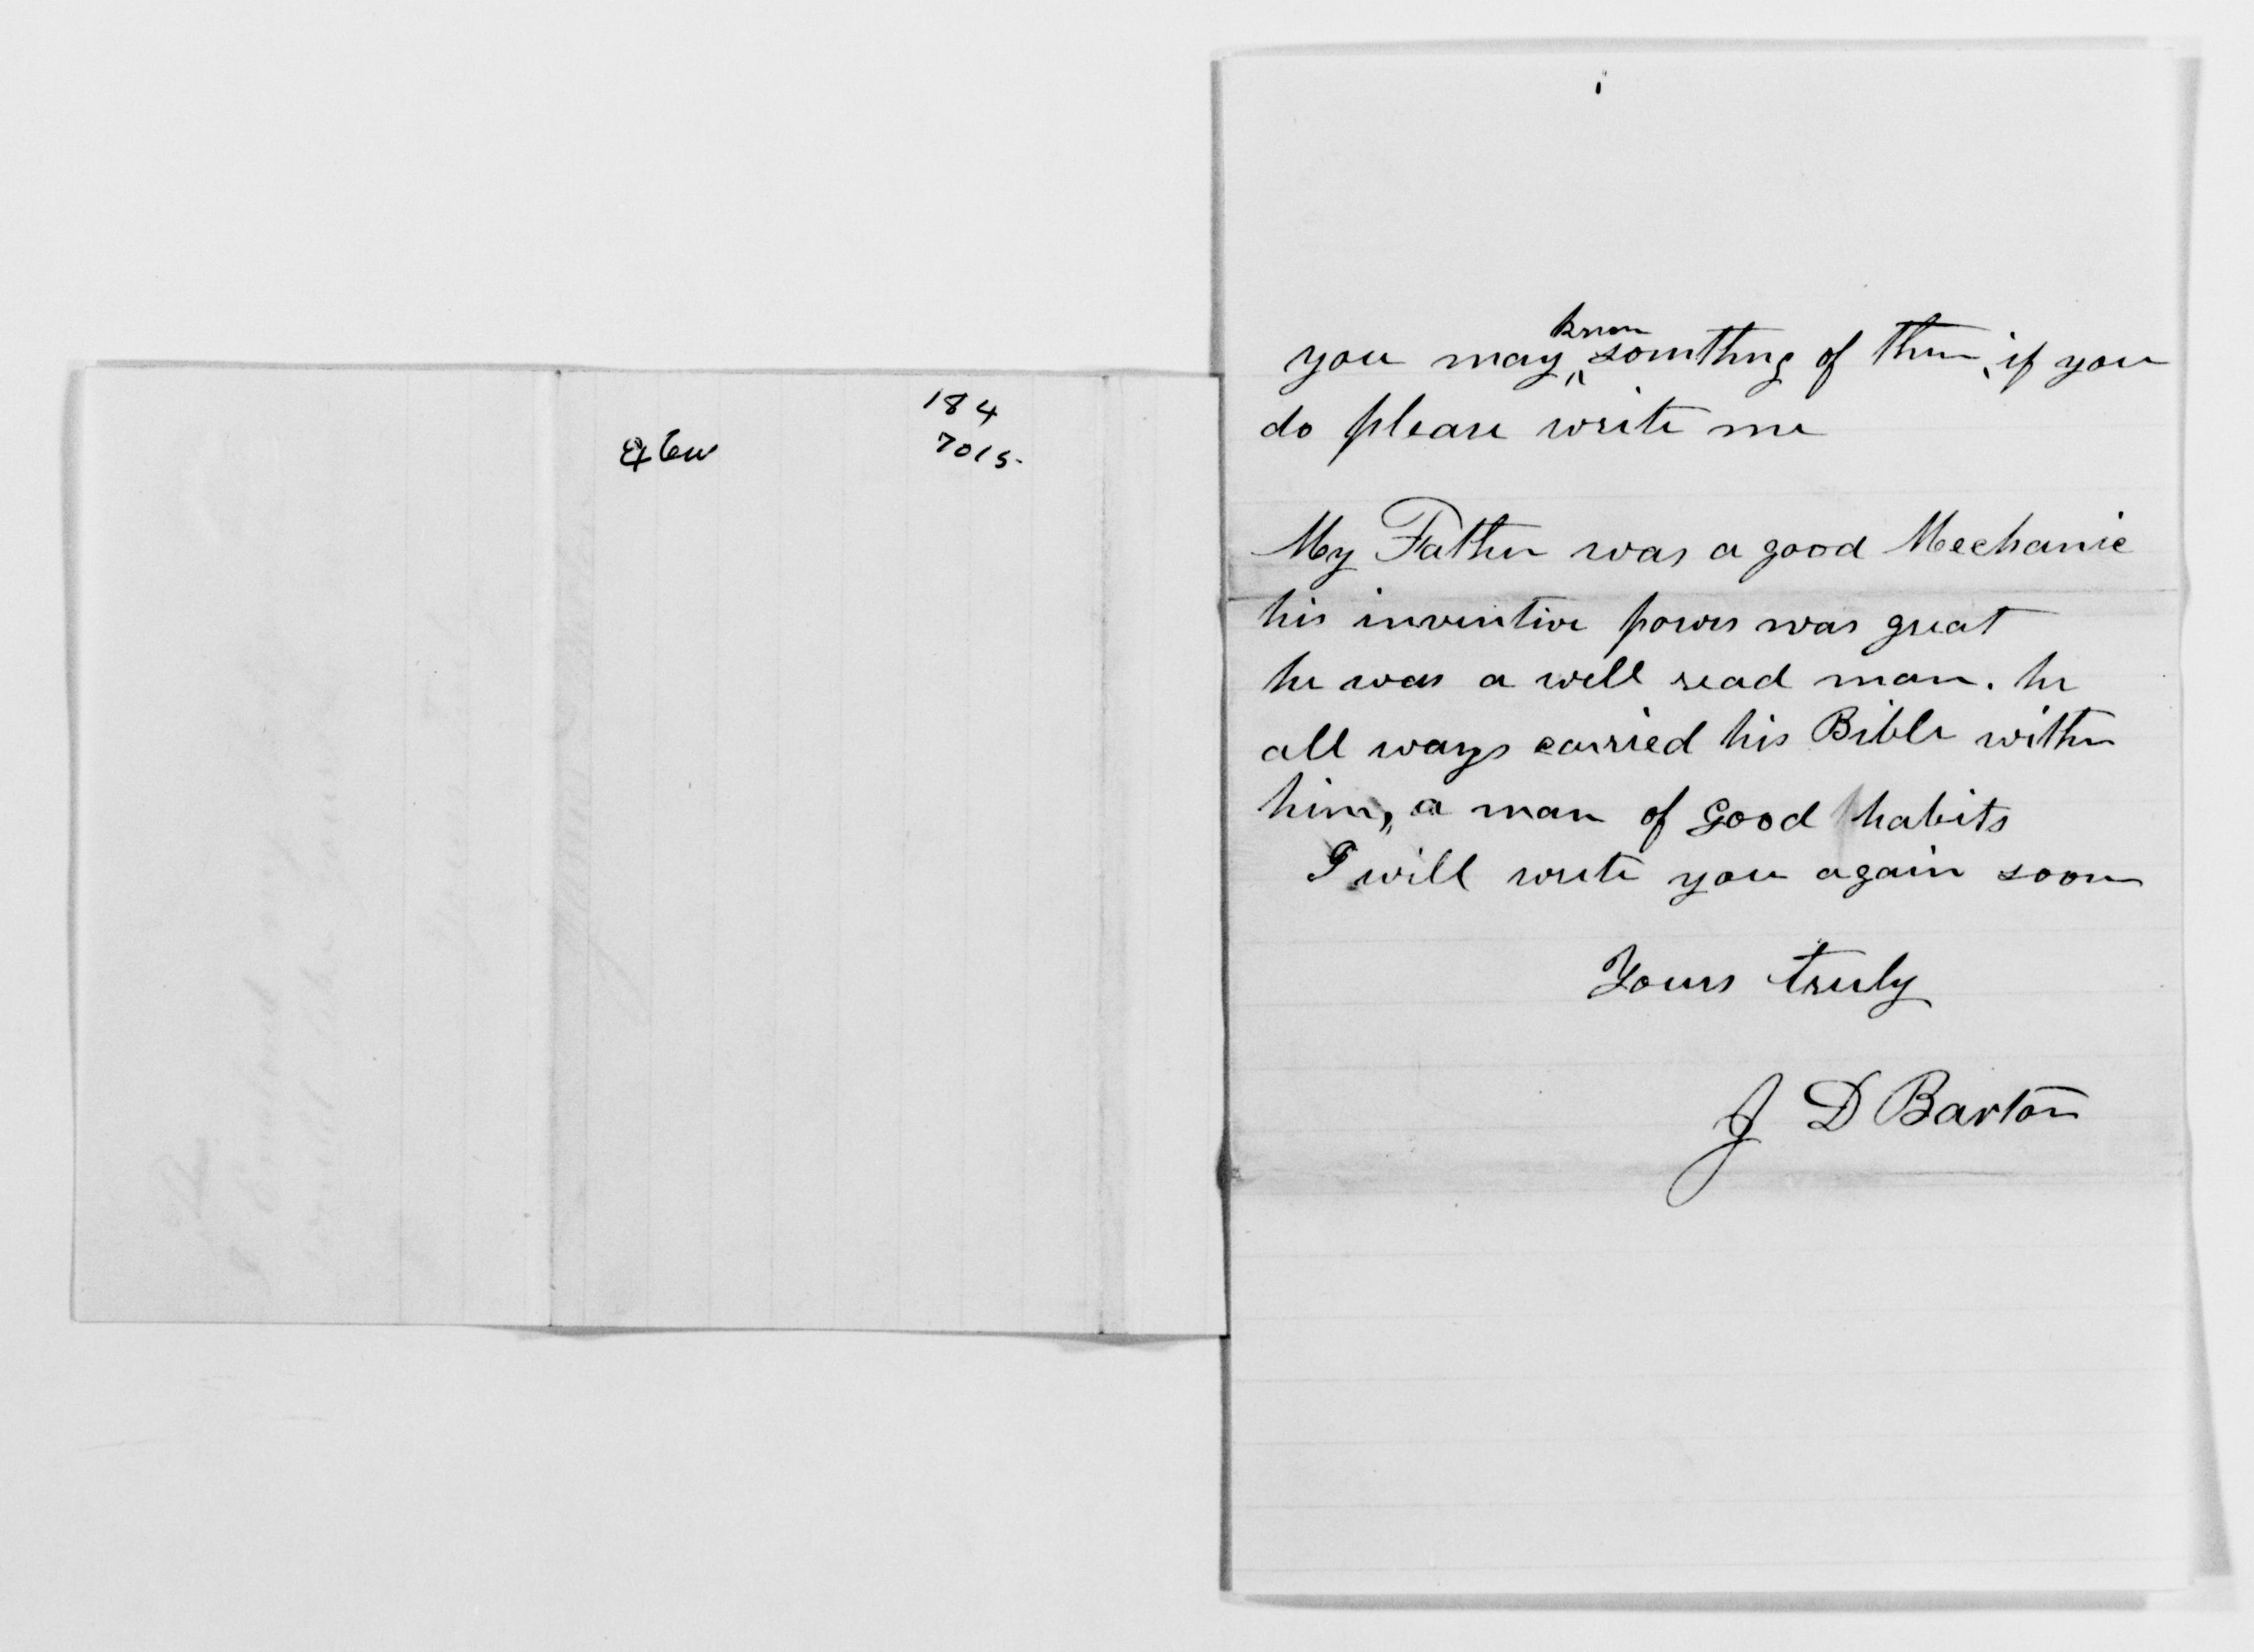 184
7015.
you may know somthing of them, if you
do please write me
My Father was a good Mechanic
his inventive power was great
he was a well read man. he
all ways carried his Bible with
him, a man of good habits
I will write you again soon
Yours truly
J D Barton